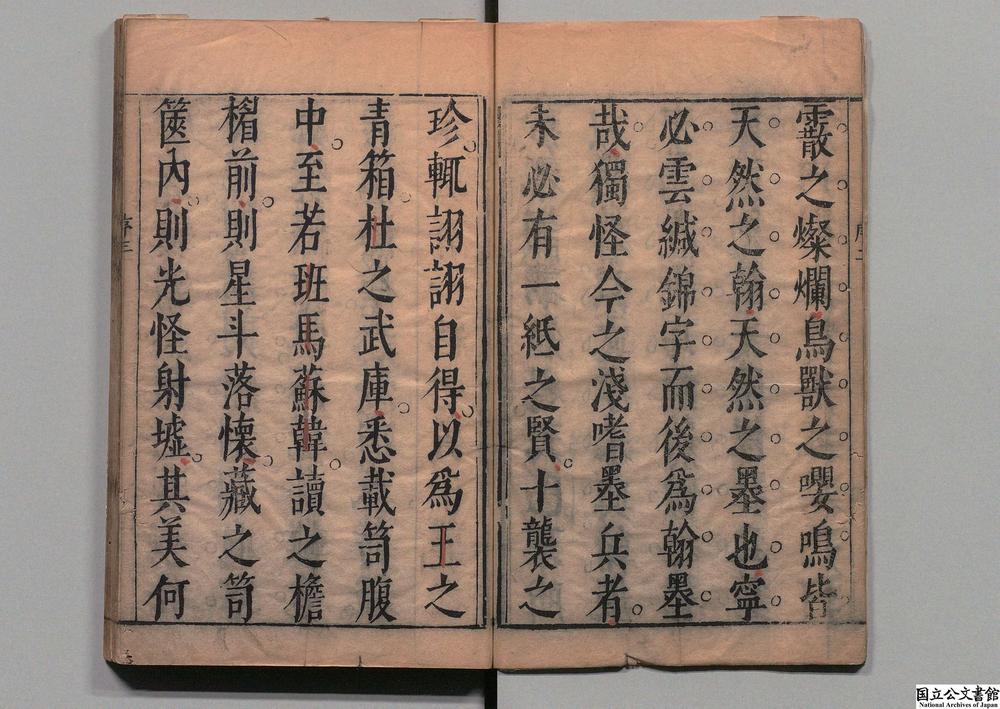 霞之燦爛鳥獸之嚶鳴皆
天然之翰天然之墨也寧
必雲緘錦字而後爲翰墨
哉獨怪今之淺嗜墨兵者
未必有一紙之賢十襲之
序二
珍輒詡詡自得以爲王之
青箱杜之武庫悉載笥腹
中至若班馬蘇韓讀之檐
楣前則星斗落懷藏之笥
篋內則光怪射墟其美何
序三
国立公文書館
National Archives of Japan